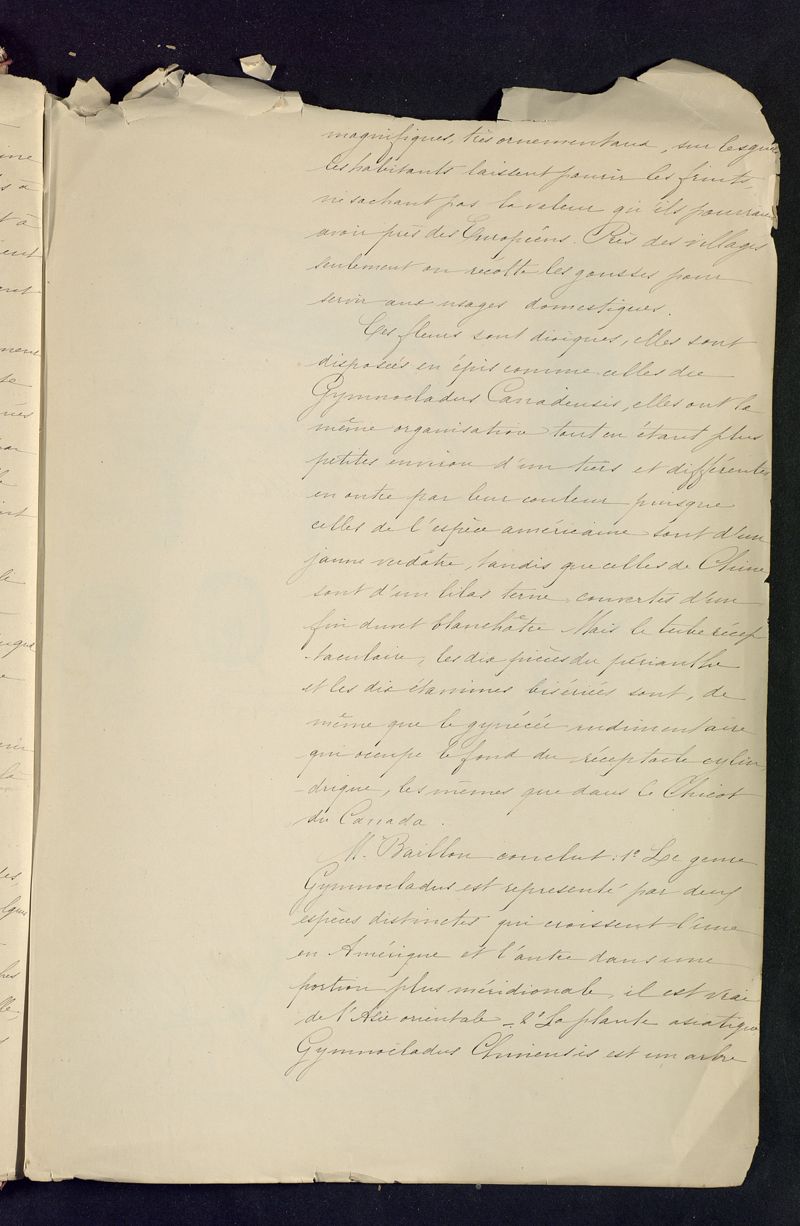 magnifiques, très ornementaux, sur lesquels
les habitants laissent pourrir les fruits,
ne sachant pas la valeur qu'ils pourraient
avoir près des Européens. Près des villages
seulement on récolte les gousses pour
servir aux usages domestiques.
Les fleurs sont dioïques, elles sont
disposées en épis comme celles du
Gymnocladus Canadensis, elles ont la
même organisation tout en étant plus
petites environ d'un tiers et différentes
en outre par leur couleur puisque
celles de l'espèce américaine sont d'un
jaune verdâtre, tandis que celles de Chine
sont d'un lilas terne couvertes d'un
fin duvet blanchâtre. Mais le tube récep
-taculaire, les dix pièces du périanthe
et les dix étamines bisériées sont, de
même que le gynécée rudimentaire
qui occupe le fond du réceptacle cylin
-drique, les mêmes que dans le Chicot
du Canada.
M. Baillon conclut: 1° Le genre
Gymnocladus est représenté par deux
espèces distinctes qui croissent l'une
en Amérique et l'autre dans une
portion plus méridionale, il est vrai
de l'Asie orientale - 2° La plante asiatique
Gymnocladus Chinensis est un arbre